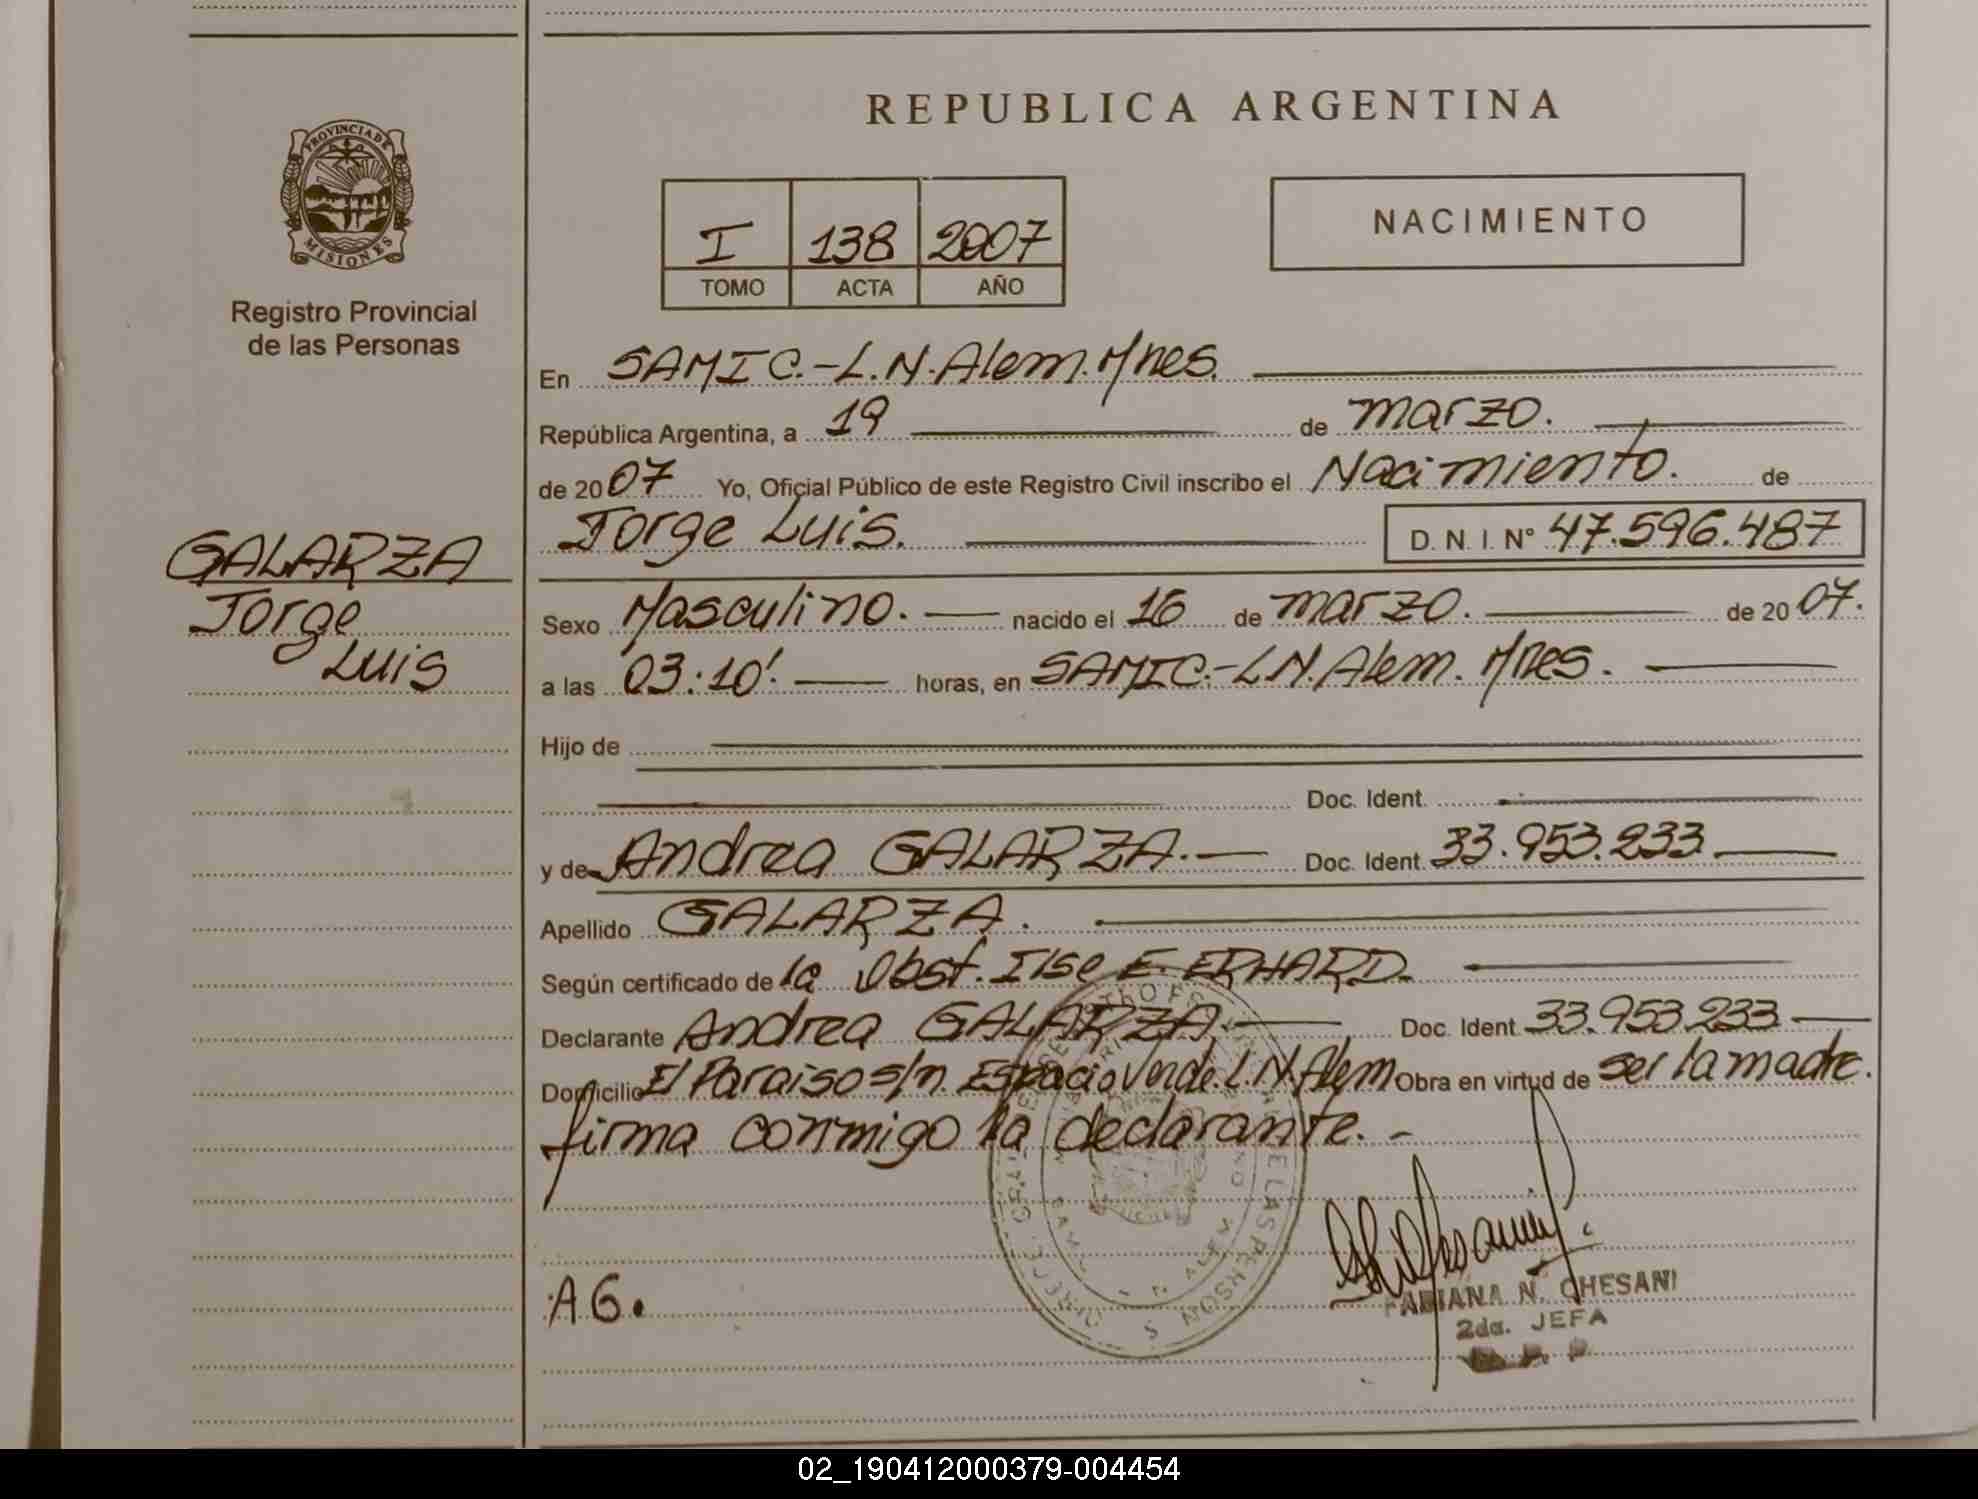 REPUBLICA ARGENTINA
PROVINCIA DE
MISIONES
Registro Provincial
de las Personas
I 138 2007
TOMO ACTA AÑO
NACIMIENTO
En SAMIC.-L.N.Alem.Mnes.
República Argentina, a 19 de marzo.
de 2007 Yo, Oficial Público de este Registro Civil inscribo el Nacimiento. de
Jorge Luis. D. N. I. N° 47.596.487
GALARZA
Jorge
Luis
Sexo Masculino. nacido el 16 de marzo. de 2007.
a las 03:10'. horas, en SAMIC.-L.N.Alem. Mnes.
Hijo de
Doc. Ident.
y de Andrea GALARZA. Doc. Ident. 33.953.233
Apellido GALARZA.
Según certificado de la Obst. Ilse E. ERHARD.
Declarante Andrea GALARZA. Doc. Ident. 33.953.233
Domicilio El Paraiso s/n. Espacio Verde. L.N.Alem Obra en virtud de ser la madre.
firma conmigo la declarante.-
A G.
FABIANA N. CHESANI
2da. JEFA
02_190412000379-004454